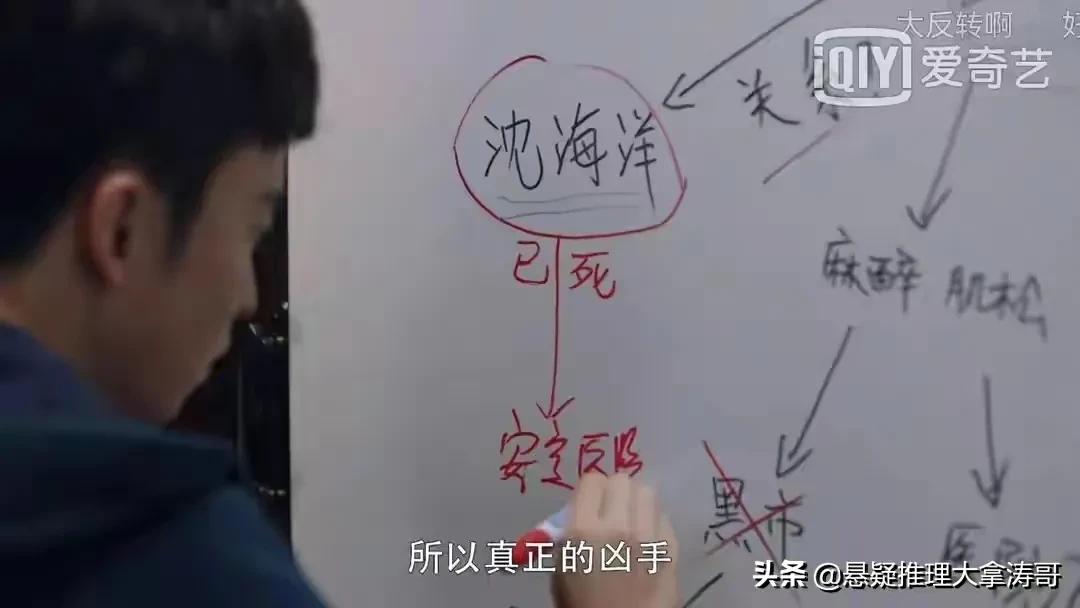 大反转啊 好
iQIY 爱奇艺
沈海洋
已死
麻醉 肌松
黑市
所以真正的凶手
头条 @悬疑推理大拿涛哥